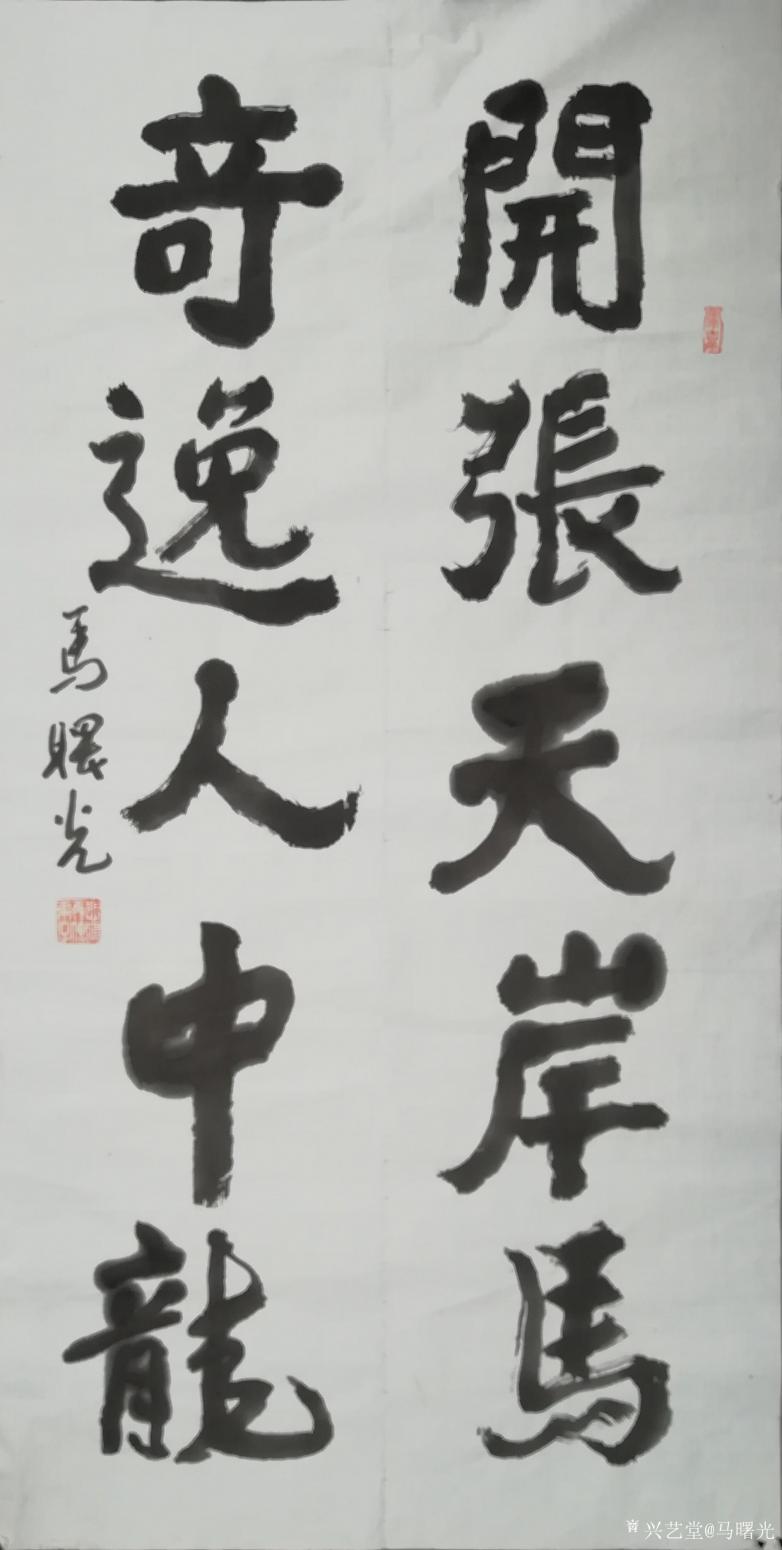 開張天岸馬
奇逸人中龍
馬曙光
兴艺堂@马曙光